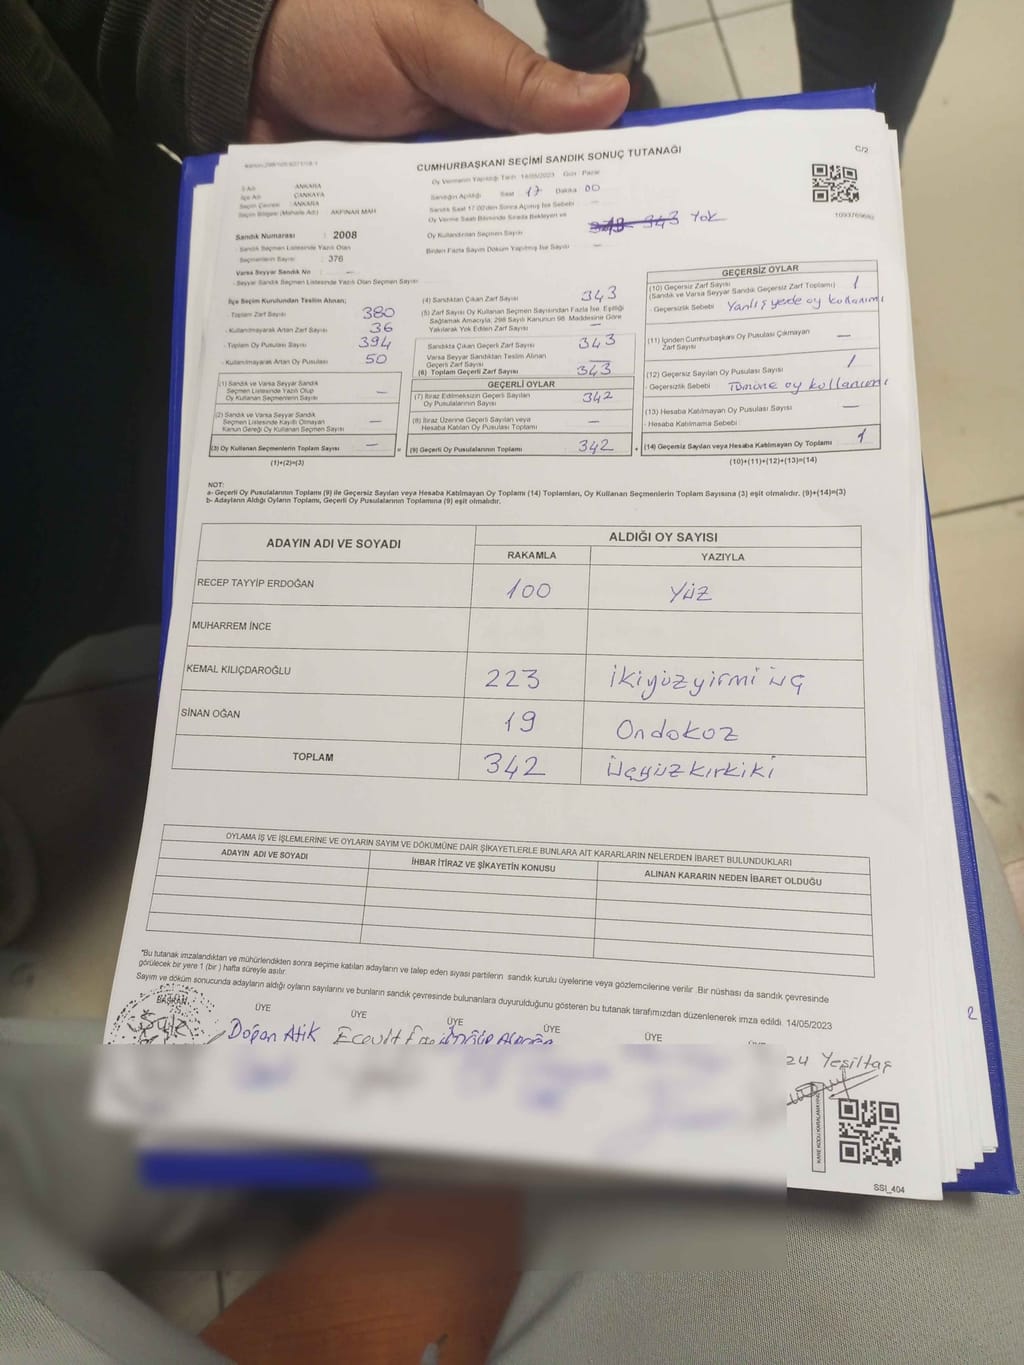 CUMHURBAŞKANI SEÇİMİ SANDIK SONUÇ TUTANAĞI
C/2
İl Adı : ANKARA
İlçe Adı : ÇANKAYA
Seçim Çevresi : ANKARA
Seçim Bölgesi (Mahalle Adı) : AKPINAR MAH
Sandık Numarası : 2008
Sandık Seçmen Listesinde Yazılı Olan
Seçmenlerin Sayısı : 376
Varsa Seyyar Sandık No —
- Seyyar Sandık Seçmen Listesinde Yazılı Olan Seçmen Sayısı
Oy Vermenin Yapıldığı Tarih : 14/05/2023 Gün : Pazar
Sandığın Açıldığı Saat 17 Dakika 00
Sandık Saat 17.00'den Sonra Açılmış İse Sebebi —
Oy Verme Saati Bitiminde Sırada Bekleyen ve
Oy Kullandırılan Seçmen Sayısı 343 Yok
Birden Fazla Sayım Döküm Yapılmış İse Sayısı —
İlçe Seçim Kurulundan Teslim Alınan;
- Toplam Zarf Sayısı 380
- Kullanılmayarak Artan Zarf Sayısı 36
- Toplam Oy Pusulası Sayısı 394
- Kullanılmayarak Artan Oy Pusulası 50
(1) Sandık ve Varsa Seyyar Sandık
Seçmen Listesinde Yazılı Olup
Oy Kullanan Seçmenlerin Sayısı —
(2) Sandık ve Varsa Seyyar Sandık
Seçmen Listesinde Kayıtlı Olmayan
Kanun Gereği Oy Kullanan Seçmen Sayısı —
(3) Oy Kullanan Seçmenlerin Toplam Sayısı —
(1)+(2)=(3)
(4) Sandıktan Çıkan Zarf Sayısı 343
(5) Zarf Sayısı Oy Kullanan Seçmen Sayısından Fazla İse, Eşitliği
Sağlamak Amacıyla; 298 Sayılı Kanunun 98. Maddesine Göre
Yakılarak Yok Edilen Zarf Sayısı —
Sandıkta Çıkan Geçerli Zarf Sayısı 343
Varsa Seyyar Sandıktan Teslim Alınan
Geçerli Zarf Sayısı —
(6) Toplam Geçerli Zarf Sayısı 343
GEÇERLİ OYLAR
(7) İtiraz Edilmeksizin Geçerli Sayılan
Oy Pusulalarının Sayısı 342
(8) İtiraz Üzerine Geçerli Sayılan veya
Hesaba Katılan Oy Pusulası Toplamı —
(9) Geçerli Oy Pusulalarının Toplamı 342
GEÇERSİZ OYLAR
(10) Geçersiz Zarf Sayısı 1
(Sandık ve Varsa Seyyar Sandık Geçersiz Zarf Toplamı)
- Geçersizlik Sebebi Yanlış yerde oy kullanımı
(11) İçinden Cumhurbaşkanı Oy Pusulası Çıkmayan
Zarf Sayısı —
(12) Geçersiz Sayılan Oy Pusulası Sayısı 1
- Geçersizlik Sebebi Tümüne oy kullanımı
(13) Hesaba Katılmayan Oy Pusulası Sayısı —
- Hesaba Katılmama Sebebi
(14) Geçersiz Sayılan veya Hesaba Katılmayan Oy Toplamı 1
(10)+(11)+(12)+(13)=(14)
NOT:
a- Geçerli Oy Pusulalarının Toplamı (9) ile Geçersiz Sayılan veya Hesaba Katılmayan Oy Toplamı (14) Toplamları, Oy Kullanan Seçmenlerin Toplam Sayısına (3) eşit olmalıdır. (9)+(14)=(3)
b- Adayların Aldığı Oyların Toplamı, Geçerli Oy Pusulalarının Toplamına (9) eşit olmalıdır.
ADAYIN ADI VE SOYADI
ALDIĞI OY SAYISI
RAKAMLA YAZIYLA
RECEP TAYYİP ERDOĞAN 100 Yüz
MUHARREM İNCE
KEMAL KILIÇDAROĞLU 223 ikiyüzyirmi üç
SİNAN OĞAN 19 Ondokoz
TOPLAM 342 üçyüzkırkiki
OYLAMA İŞ VE İŞLEMLERİNE VE OYLARIN SAYIM VE DÖKÜMÜNE DAİR ŞİKAYETLERLE BUNLARA AİT KARARLARIN NELERDEN İBARET BULUNDUKLARI
ADAYIN ADI VE SOYADI
İHBAR İTİRAZ VE ŞİKAYETİN KONUSU
ALINAN KARARIN NEDEN İBARET OLDUĞU
*Bu tutanak imzalandıktan ve mühürlendikten sonra seçime katılan adayların ve talep eden siyasi partilerin sandık kurulu üyelerine veya gözlemcilerine verilir. Bir nüshası da sandık çevresinde
görülecek bir yere 1 (bir ) hafta süreyle asılır.
Sayım ve döküm sonucunda adayların aldığı oyların sayılarını ve bunların sandık çevresinde bulunanlara duyurulduğunu gösteren bu tutanak tarafımızdan düzenlenerek imza edildi. 14/05/2023
BAŞKAN ÜYE ÜYE ÜYE ÜYE ÜYE
Şule Doğan Atik Ecevit
Yeşiltaş
KARE KODU KARALAMAYINIZ
SSI_404
2